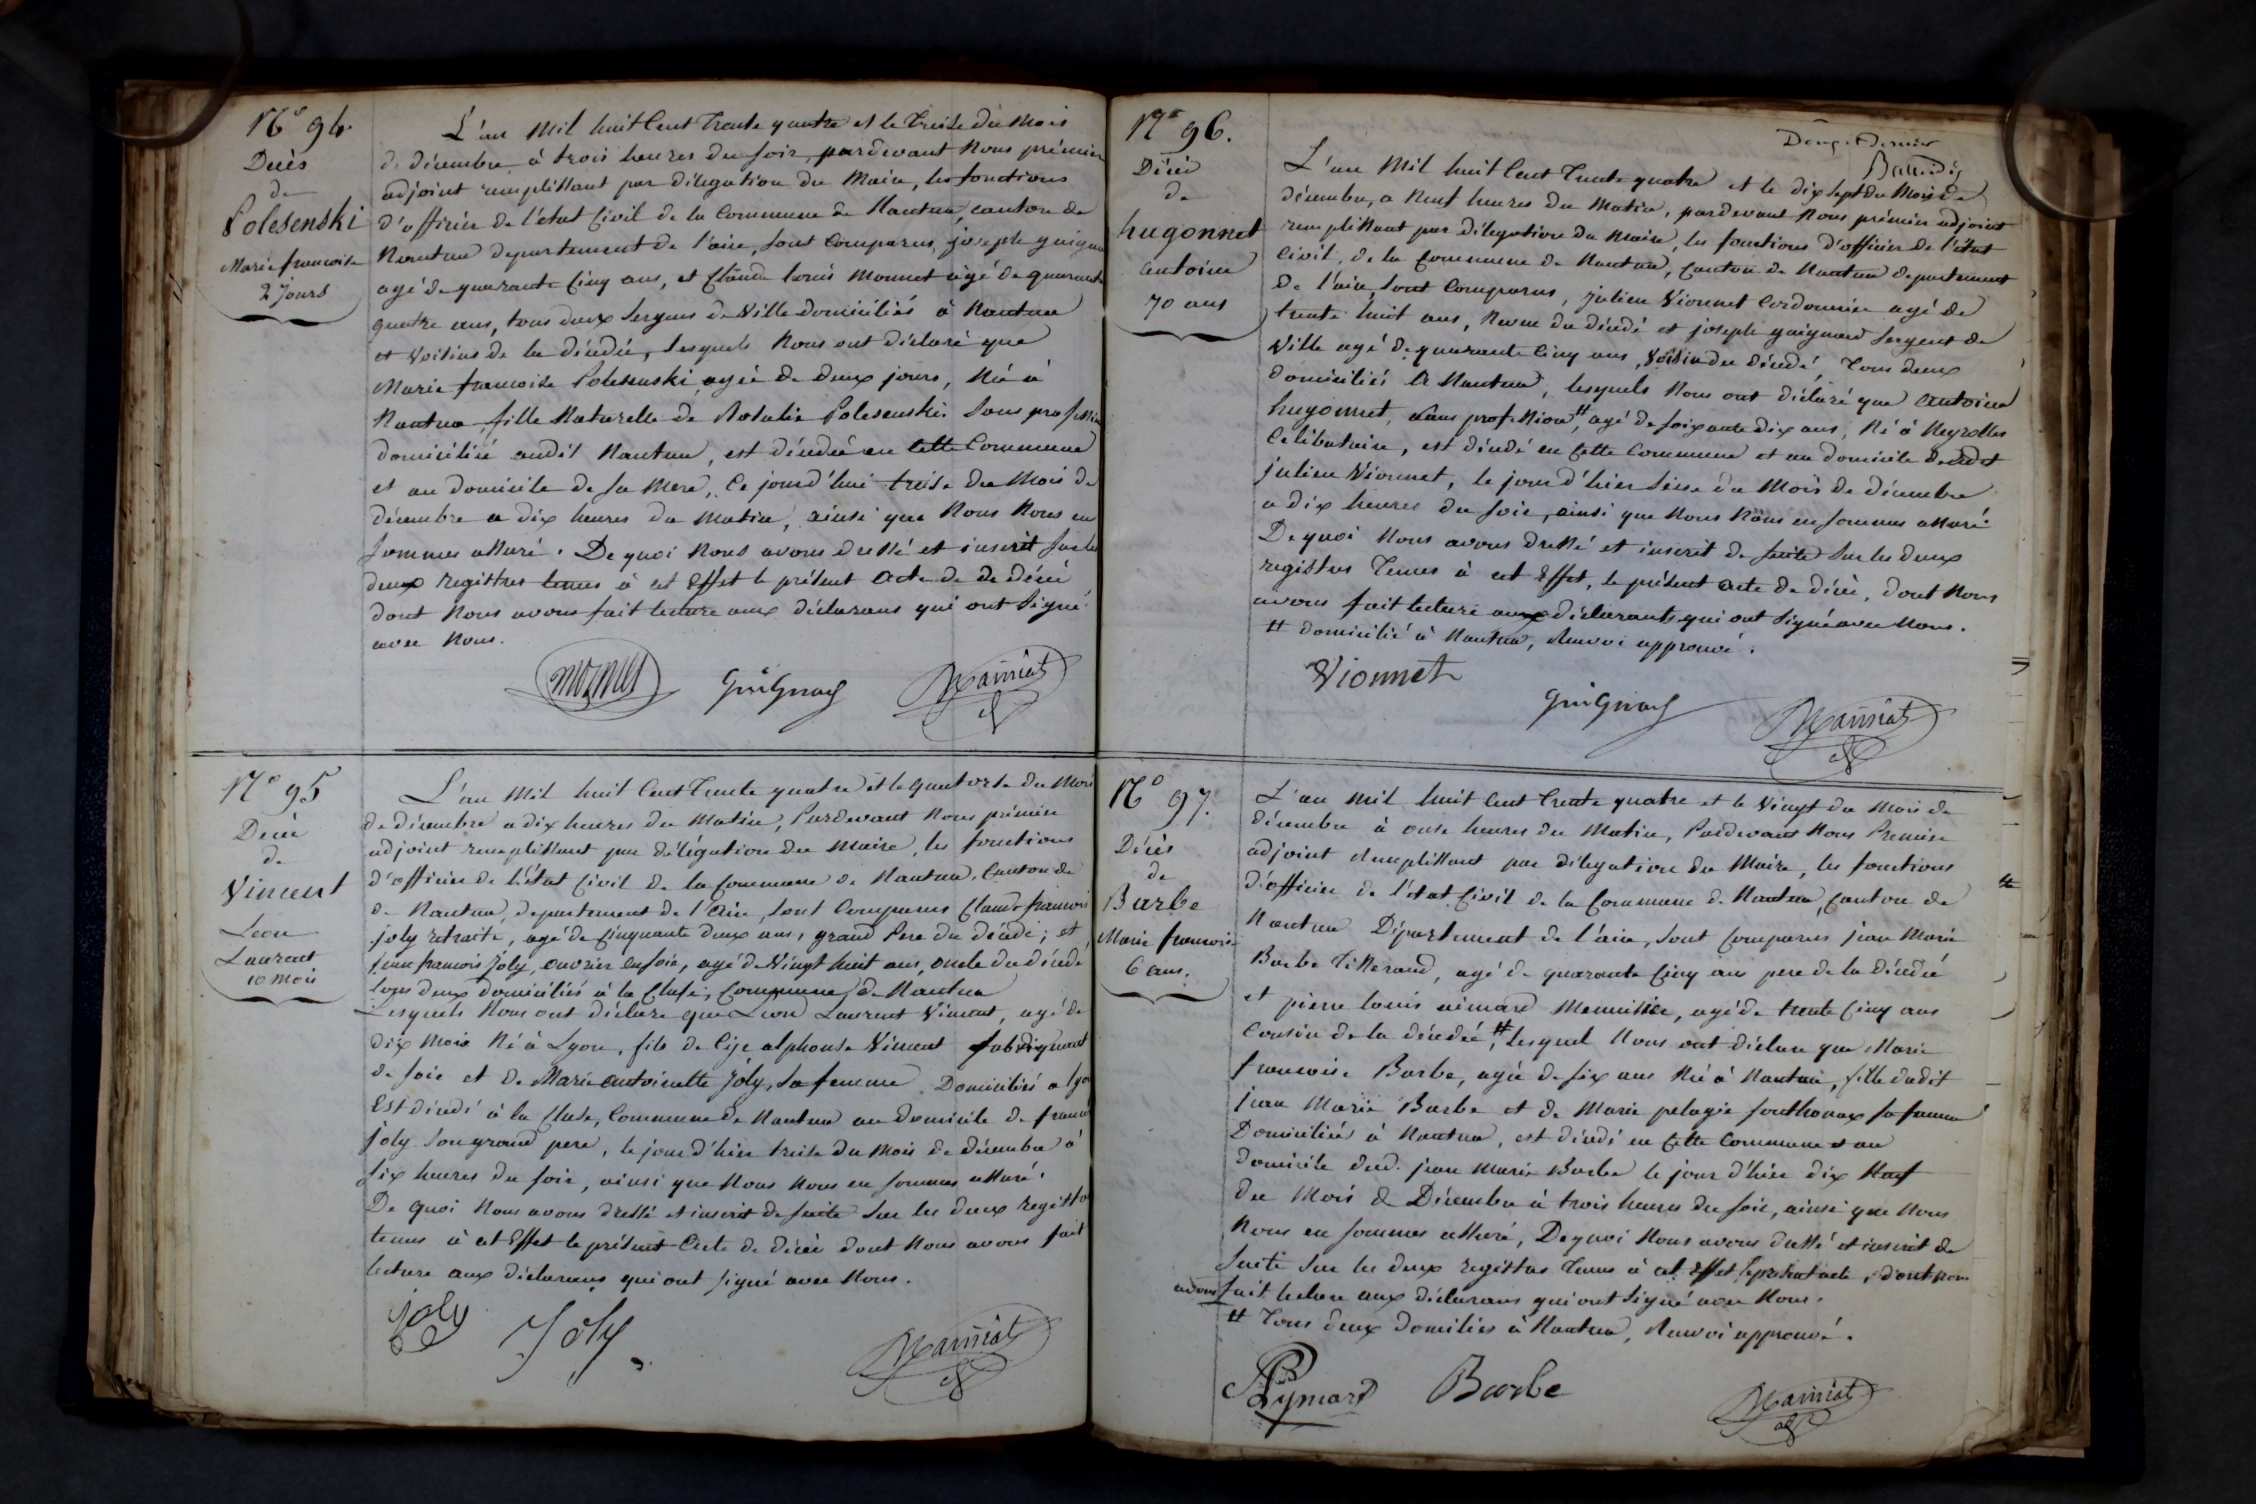 N° 94.
Decès
de
Polesenski
Marie francoise
2 Jours
L'an Mil huit Cent Trente quatre et le treise du Mois
de décembre à trois heures du soir, pardevant Nous prémier
adjoint remplissant par délegation du Maire, les fonctions
d'officier de l'état Civil de la Commune de Nantua, canton de
Nantua departement de l'ain, sont Comparus, joseph guignard
agé de quarante Cinq ans, et Claude louis Monnet agé de quarante
quatre ans, tous deux sergens de Ville domiciliés à Nantua
et Voisins de la décédée, lesquels Nous ont déclaré que
Marie francoise Polesenski agée de deux jours, Née à
Nantua fille Naturelle de Rosalie Polesenski sans profession
domiciliée audit Nantua, est décédée en Cette Commune
et au domicile de sa Mere, Ce jourd'hui treise du Mois de
décembre a dix heures du Matin, ainsi que Nous Nous en
sommes assuré. De quoi Nous avons dressé et inscrit sur les
deux registres tenus à cet Effet le présent acte de de décés
dont Nous avons fait lecture aux déclarans qui ont signé
avec Nous.
Monnet Guignard Manniat
N° 95
Décè
de
Vincent
Leon
Laurent
10 Mois
L'an Mil huit Cent Trente quatre et le quatorse du Mois
de décembre a dix heures du Matin, Pardevant Nous prémier
adjoint remplissant par délégation du Maire, les fonctions
d'officier de l'état Civil de la Commune de Nantua, Canton de
de Nantua, departement de l'Ain, sont Comparus Claude francois
joly retraité, agé de Cinquante deux ans, grand Pere du décédé; et
jean francois Joly, ouvrier en soie, agé de Vingt huit ans, oncle du décédé
tous deux domiciliés à la Cluse, Commune de Nantua
Lesquels Nous ont déclaré que Leon Laurent Vincent, agé de
dix Mois Né à Lyon, fils de alphonse Vincent
de soie et de Marie antoinette Joly, sa femme Domiciliés a lyon
Est décédé à la Cluse, Commune de Nantua au domicile de francois
joly son grand pere, le jour d'hier treise du Mois de décembre à
six heures du soir, ainsi que Nous Nous en sommes assuré.
De quoi Nous avons dressé et inscrit de suite sur les deux registres
tenus à cet Effet le présent Acte de décès dont Nous avons fait
lecture aux déclarans qui ont signé avec Nous.
Joly Joly Manniat
N° 96.
Décè
de
hugonnet
antoine
70 ans
L'an Mil huit Cent Trente quatre et le dix sept du Mois de
décembre, a Neuf heures du Matin, pardevant Nous prémier adjoint
remplissant par délegation du Maire, les fonctions d'officier de l'état
Civil, de la Commune de Nantua, Canton de Nantua departement
de l'ain sont Comparus, julien Vionnet Cordonnier agé de
trente huit ans, Neveu du décédé et joseph guignard sergent de
Ville agé de quarante Cinq ans, Voisin du décédé, Tous deux
domiciliés à Nantua, lesquels Nous ont déclaré que antoine
hugonnet, sans profession #, agé de soixante dix ans, Né à Neyrolles
Celibataire, est décédé en Cette Commune et au domicile dudit
julien Vionnet, le jour d'hier seise du Mois de décembre
a dix heures du soir, ainsi que Nous Nous en sommes assuré
De quoi Nous avons dressé et inscrit de suite sur les deux
registres Tenus à cet Effet, le présent acte de décè, dont Nous
avons fait lecture aux déclarants qui ont signé avec Nous.
# domicilié à Nantua, Renvoi approuvé.
Vionnet
Guignard Manniat
N° 97.
Décès
de
Barbe
Marie francoise
6 ans.
L'an mil huit Cent Trente quatre et le Vingt du Mois de
décembre à onse heures du Matin, Pardevant Nous Premier
adjoint Remplissant par délegation du Maire, les fonctions
d'officier de l'état Civil de la Commune de Nantua, Canton de
Nantua Département de l'ain, sont Comparus jean Marie
Barbe Tisserand, agé de quarante Cinq ans pere de la décédée
et pierre louis aimard Menuisier, agé de trente Cinq ans
Cousin de la décédée, # lesquel Nous ont déclare que Marie
francoise Barbe, agée de six ans Née à Nantua, fille dudit
jean Marie Barbe et de Marie pelagie sonthonax sa femme
Domiciliée à Nantua, est décédé en Cette Commune et au
domicile dud. jean Marie Barbe le jour d'hier dix Neuf
du Mois de Décembre à trois heures du soir, ainsi que Nous
Nous en sommes assuré, De quoi Nous avons dressé et inscrit de
suite sur les deux registres Tenus à cet Effet le présent acte, dont nous
avons fait lecture aux déclarans qui ont signé avec Nous.
# Tous deux domiliés à Nantua, Renvoi approuvé.
Aymard Barbe Manniat